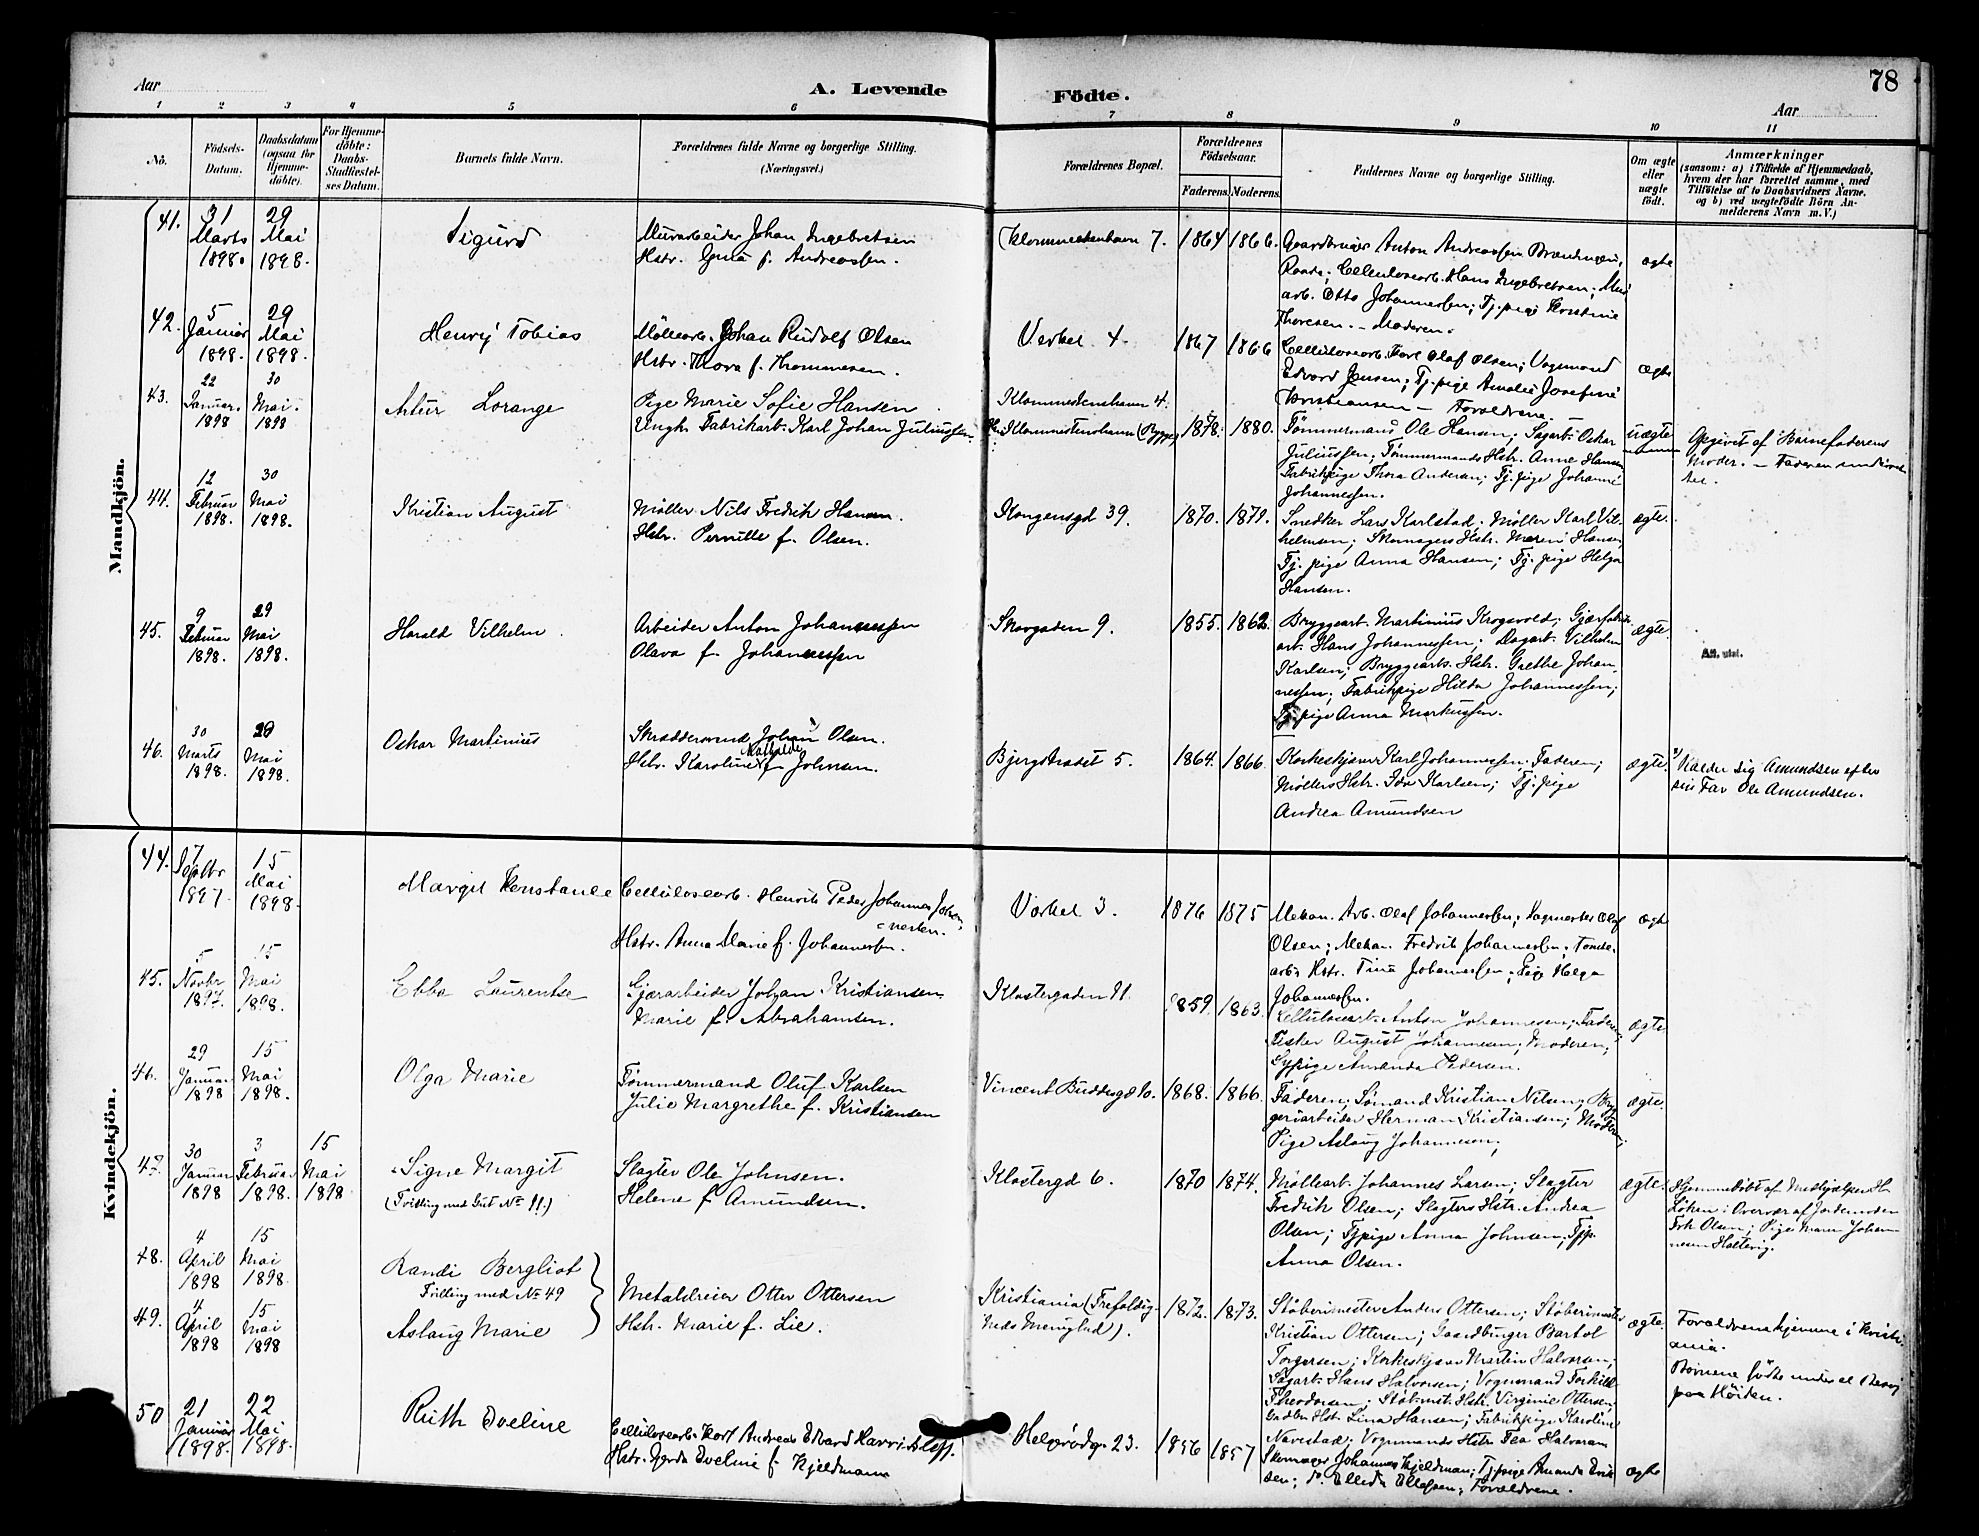 78
Aar
A. Levende
Födte.
Aar
1 2 3 4 5 6 7 8 9 10 11
No.
Födsels-Datum.
Daabsdatum (ogsaa for Hjemme-döbte).
For Hjemme-döbte: Daabs-Stadfæstel-ses Datum.
Barnets fulde Navn.
Forældrenes fulde Navne og borgerlige Stilling. (Næringsvei.)
Forældrenes Bopæl.
Forældrenes Födselsaar.
Faderens. Moderens.
Faddernes Navne og borgerlige Stilling.
Om ægte eller uægte födt.
Anmærkninger
(saasom: a) i Tilfælde af Hjemmedaab, hvem der har forrettet samme, med Tilföielse af to Daabsvidners Navne. og b) ved uægtefödte Börn An-melderens Navn m. V.)
Mandkjön.
41. 31 Marts 1898. 29 Mai 1898.
Sigurd
Murarbeider Johan Ingebretsen
Hstr. Gina f. Andreassen.
Klommestenhavn 7. 1864 1866.
Gaardbruger Anton Andreassen
Raade; Cellulosearb. Hans Ingebretsen; Mur
arb. Otto Johannessen; Tj. pige Kristine
Thoresen. – Moderen.
ægte
42. 5 Januar 1898. 29 Mai 1898.
Henrij Tobias
Möllearb. Johan Rudolf Olsen
Hstr. Thora f. Thomanesen.
Verket 4. 1867 1866
Cellulosearb. Karl Olaf Olsen; Vognmand
Edvard Jensen; Tj. pige Amalie Josefine
Kristiansen – Forældrene.
ægte
43. 22 Januar. 1898 30 Mai. 1898
Artur Lorange
Pige Marie Sofie Hansen.
Ungk. Fabrikarb. Karl Johan Juliussen
Klommestenshavn 4.
Klommestenshavn (Rygge) 1878. 1880.
Tømmermand Ole Hansen; Sagarb. Oskar
Juliussen; Tømmermands Hstr. Anne Hansen
Fabrikpige Thora Andersen; Tj. pige Johanne
Johannessen.
uægte
Opgivet af Barnefaderens
Moder. – Faderen
44. 12 Februar 1898. 30 Mai 1898.
Kristian August
Møller Nils Fredrik Hansen.
Hstr. Pernille f. Olsen.
Kongensgd 39. 1870. 1871.
Snedker Lars Karlstad; Møller Karl Vil-
helmsen; Skomagers Hstr. Maren Hansen
Tj. pige Anna Hansen; Tj. pige Helga
Hansen.
ægte.
45. 9 Februar 1898. 29 Mai 1898.
Harald Vilhelm.
Arbeider Anton Johannessen
Olava f. Johannessen
Skovgaden 9. 1855. 1862.
Bryggearb. Martinius Krogsvold; Gjærfabrik
arb. Hans Johannessen; Dagarb. Vilhelm
Karlsen; Bryggearb. Hstr. Grethe Johan-
nessen; Fabrikpige Hilda Johannessen;
Tj. pige Anna Markussen.
ægte.
Att. utst.
46. 30 Marts 1898. 29 Mai 1898.
Oskar Martinius
Skræddersvend Johan Olsen.
Hstr. Karoline Mathilde f. Johnsen.
Bjergstrædet 5. 1864. 1866.
Korkeskjærer Karl Johannessen; Faderen;
Møllers Hstr. Ida Karlsen; Tj. pige
Andrea Amundsen
ægte.
Kalder sig Amundsen efter
sin Far Ole Amundsen.
Kvindekjön.
44. 7 Septbr 1897. 15 Mai 1898.
Margit Konstanse
Cellulosearb. Henrik Peder Johannes Johan-
nesen.
Hstr. Anna Marie f. Johannessen.
Værket 3. 1876 1875
Mekan. Arb. Olaf Johannessen; Olaf
Olsen; Mekan. Fredrik Johannessen; Tomte-
arb. Hstr. Tina Johannessen; Pige Helga
Johannessen.
ægte
45. 5 Novbr 1897. 15 Mai 1898.
Ebba Laurentse
Gjærarbeider Johan Kristiansen
Marie f. Abrahamsen.
Klostergaden 11. 1859. 1863.
Cellulosearb. Anton Johannesen; Faderen;
Fisker August Johannesen; Moderen;
Sypige Amanda Pedersen.
ægte
46. 29 Januar 1898 15 Mai 1898.
Olga Marie
Tømmermand Oluf Karlsen
Julie Margrethe f. Kristiansen
Vincent Buddesgd 10. 1868. 1866.
Faderen; Sømand Kristian Nilsen; Bryg
geriarbeider Herman Kristiansen; Moderen;
Pige Aslaug Johannesen;
ægte.
47. 30 Januar 1898 3 Februar 1898. 15 Mai 1898
Signe Margit
(Tvilling med Gut No 11.)
Slagter Ole Johnsen.
Helene f. Amundsen.
Klostergd 6. 1870 1874.
Møllearb. Johannes Larsen; Slagter
Fredrik Olsen; Slagters Hstr. Andrea
Olsen; Tjpige Anna Johnsen; Tjp.
Anna Olsen.
ægte.
Hjemmedøbt af Medhjælper H.
Løken i Overvær af Jordemoder
Frk Olsen; Pige Maren Johan
nesen
48. 4 April 1898 15 Mai 1898.
Randi Bergliot
Tvilling med No 49
49. 4 April 1898 15 Mai 1898
Aslaug Marie
Metaldreier Otter Ottersen
Hstr. Marie f. Lie.
Kristiania (Trefoldig-
heds Menighed). 1872. 1873.
Støberimester Anders Ottersen; Støberimester
Kristian Ottersen; Gaardbruger Bartol
Torgersen; Korkeskjærer Martin Halvorsen;
Sagarb. Hans Halvorsen; Vognmand Torkild
Theodorsen; Støbmst. Hstr. Virginie Ottersen
Hstr. Lina Hansen; Fabrikpige Karoline
Navestad; Vognmands Hstr. Tea Halvorsen
ægte.
Forældrene hjemme i Kristi-
ania.
Børnene fødte under et Besøg
paa Høiden.
50 21 Januar 1898. 22 Mai 1898.
Ruth Eveline
Cellulosearb. Karl Andreas Edvard Harris
Hstr. Gerda Eveline f. Kjeldmann
Helgerödgd. 23. 1896 1897
Skomager Johannes Kjeldman; Tjpige Amanda Erik
sen; Elleda Ellefsen; Forældrene.
ægte